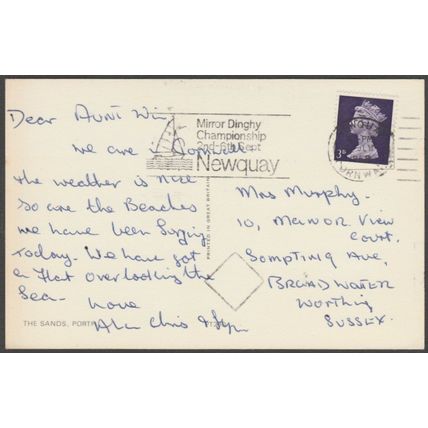 Dear Aunt Win,
We are in Cornwall
the weather is nice
so are the Beaches
we have been Surfing
today. We have got
a flat overlooking the
Sea.
Love
Chris &
THE SANDS, PORT
PRINTED IN GREAT BRITAIN
Mirror Dinghy
Championship
2nd-6th Sept
Newquay
3D
CORNWALL
Mrs Murphy.
10, Manor View
Court.
Sompting Ave,
BROADWATER
Worthing
SUSSEX.